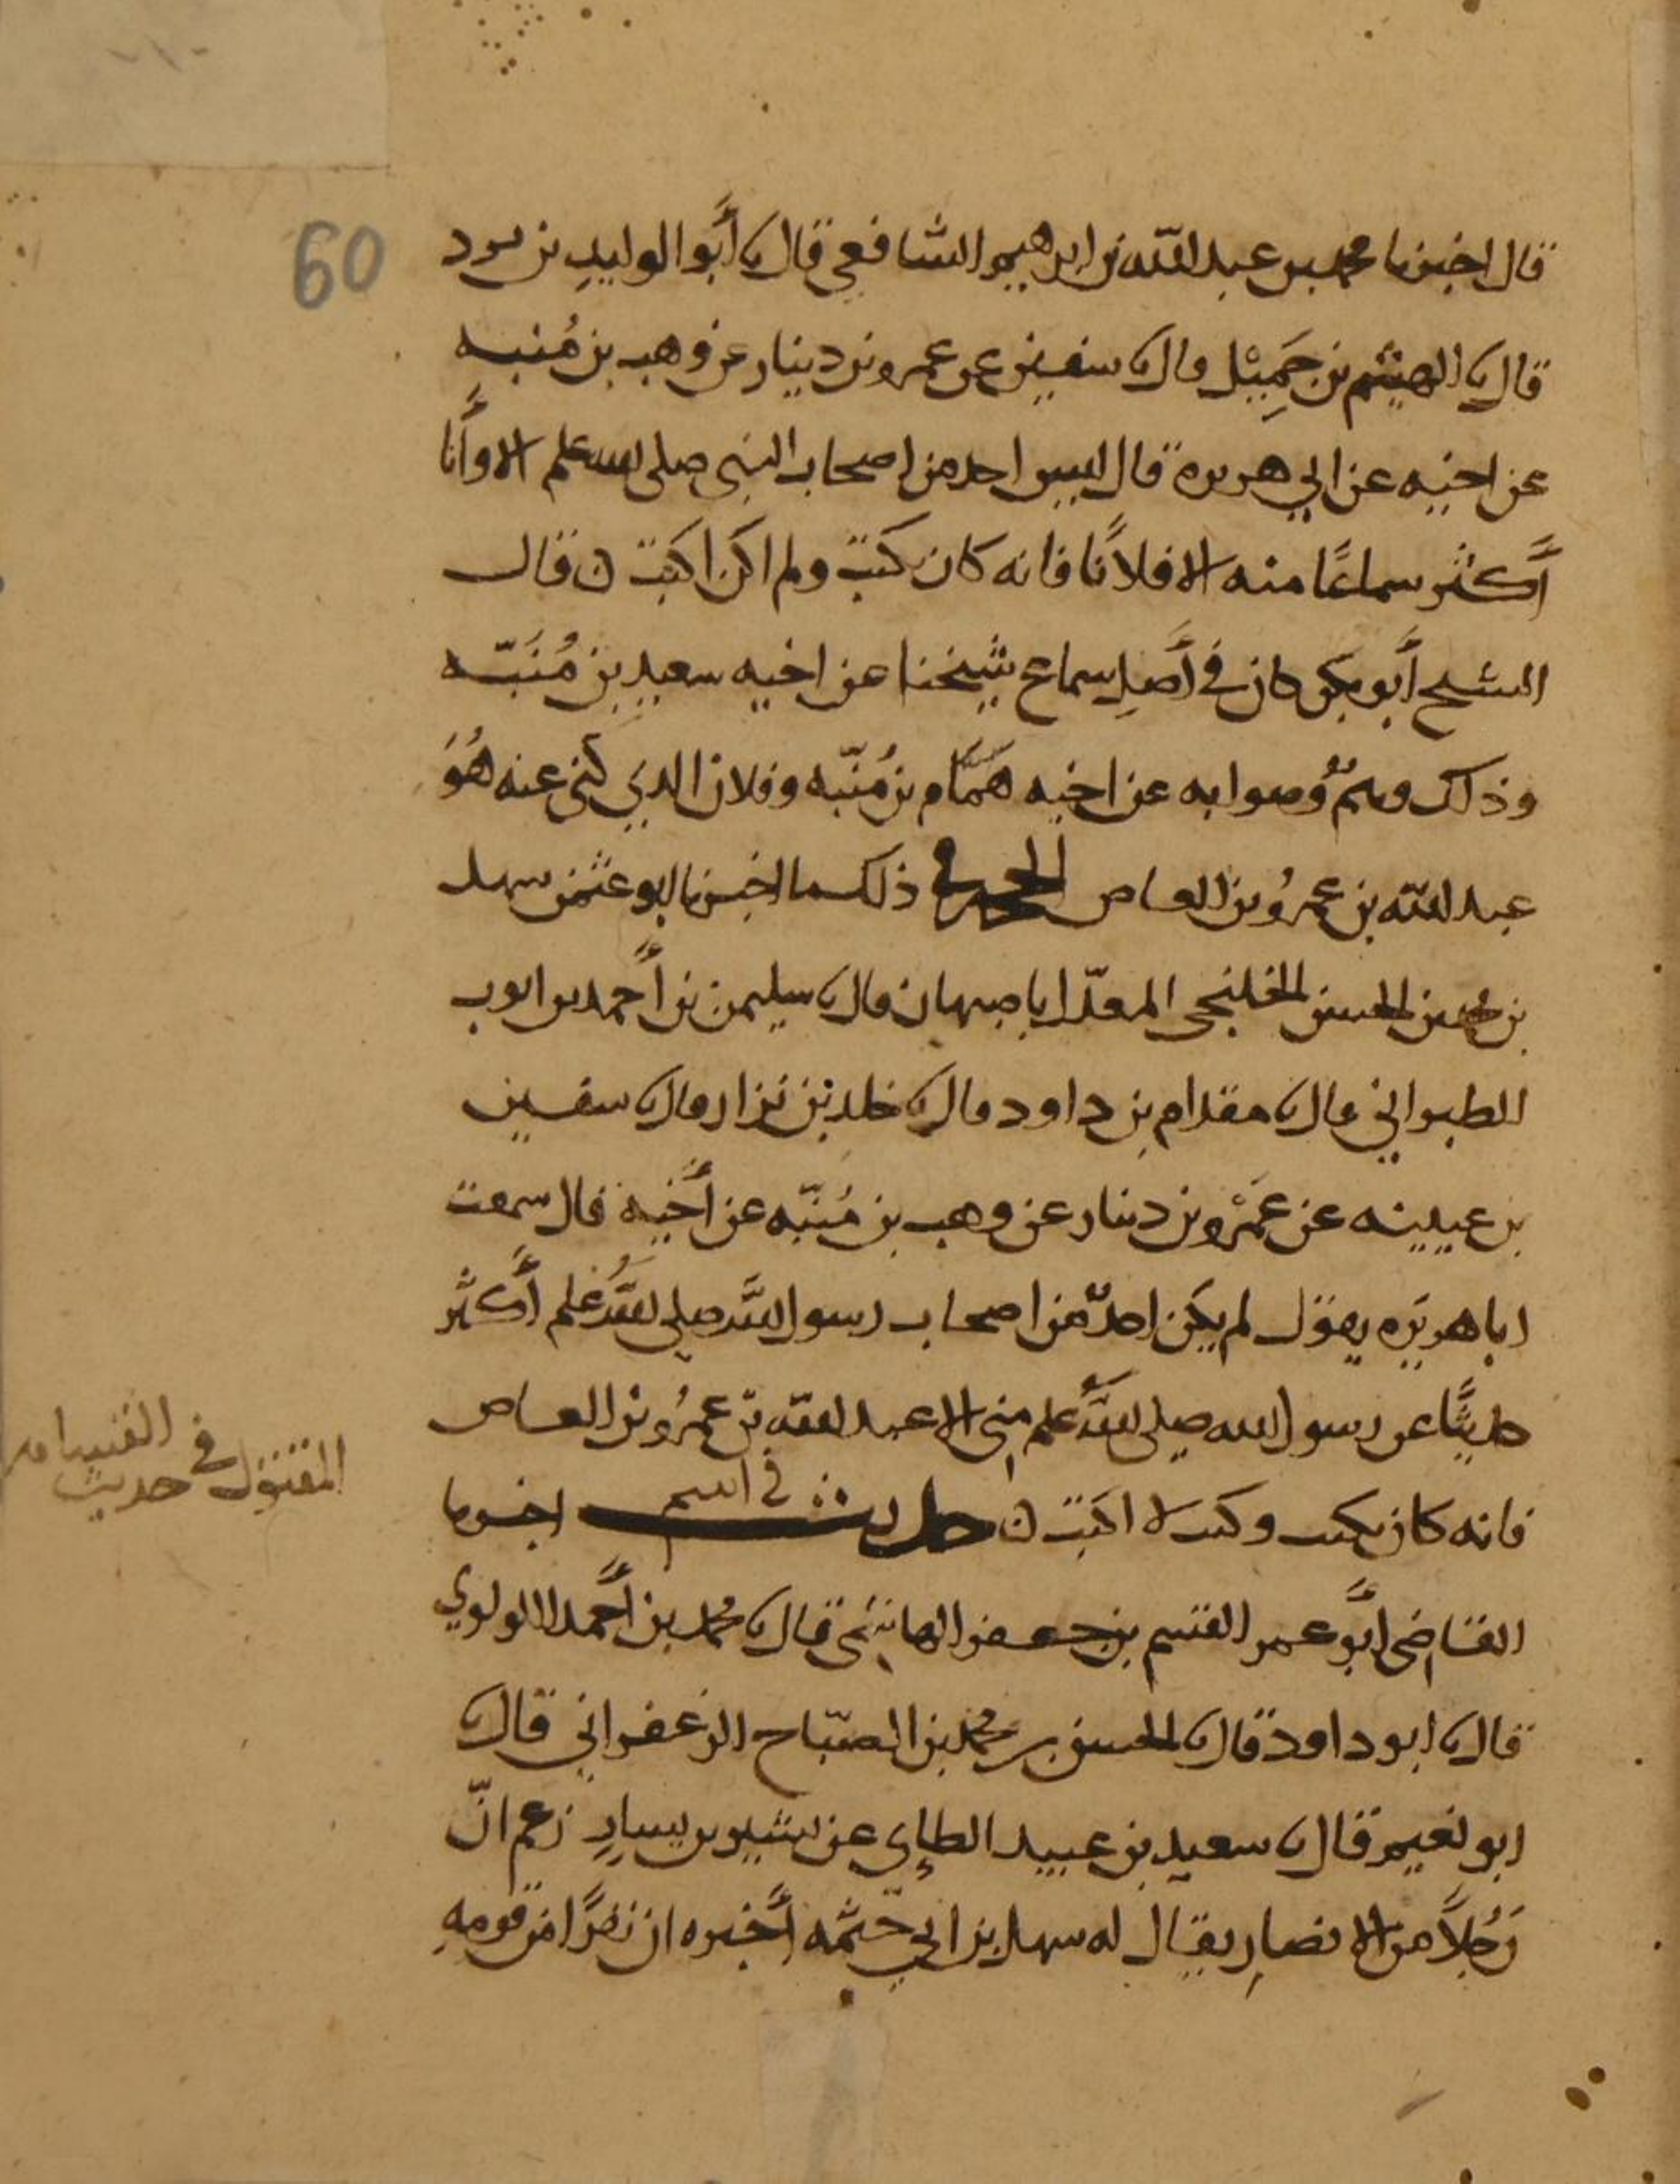 60
قال اخبرنا محمد بن عبد الله بن ابرهيم الشافعي قال نا أبو الوليد بن برد
قال نا الهيثم بن جميل قال نا سفين عن عمرو بن دينار عن وهب بن مُنبه
عن اخيه عن ابي هريرة قال ليس احد من اصحاب النبي صلى الله علم الا وأنا
أكثر سماعًا منه الا فلانًا فانه كان يكتب ولم اكن اكتب ن قال
الشيخ أبو بكر كان في أصل سماع شيخنا عن اخيه سعيد بن مُنَبّه
وذلك وهمٌ وصوابه عن اخيه همّام بن مُنبّه وفلان الذي كنى عنه هُوَ
عبد الله بن عمرو بن العاص الحجه في ذلك ما اخبرنا ابو عثمن سهل
بن محمد بن الحسن الخلنجي المعدّل باصبهان قال نا سليمن بن أحمد بن ايوب
الطبراني قال نا مقدام بن داود قال نا خلد بن نزار قال نا سفين
بن عيينه عن عَمْرو بن دينار عن وهب بن مُنبّه عن أخيه قال سمعت
ابا هريره يقول لم يكن احدٌ من اصحاب رسول الله صلى الله علم أكثر
حديثًا عن رسول الله صلى الله علم مني الا عبد الله بن عمرو بن العاص
فانه كان يكتب وكنت لا اكتب ن حديث في اسم اخبرنا
المقتول في حديث القسامه
القاضي أبو عمر القسم بن جعفر الهاشمي قال نا محمد بن أحمد اللولوي
قال نا ابو داود قال نا الحسن بن محمد بن الصّباح الزعفراني قال نا
ابو نعيم قال نا سعيد بن عبيد الطاي عن بشير بن يسارٍ زعم انّ
رَجُلاً من الانصارِ يقال له سهل بن ابي حَثْمه أخبره ان نفرًا من قومهِ